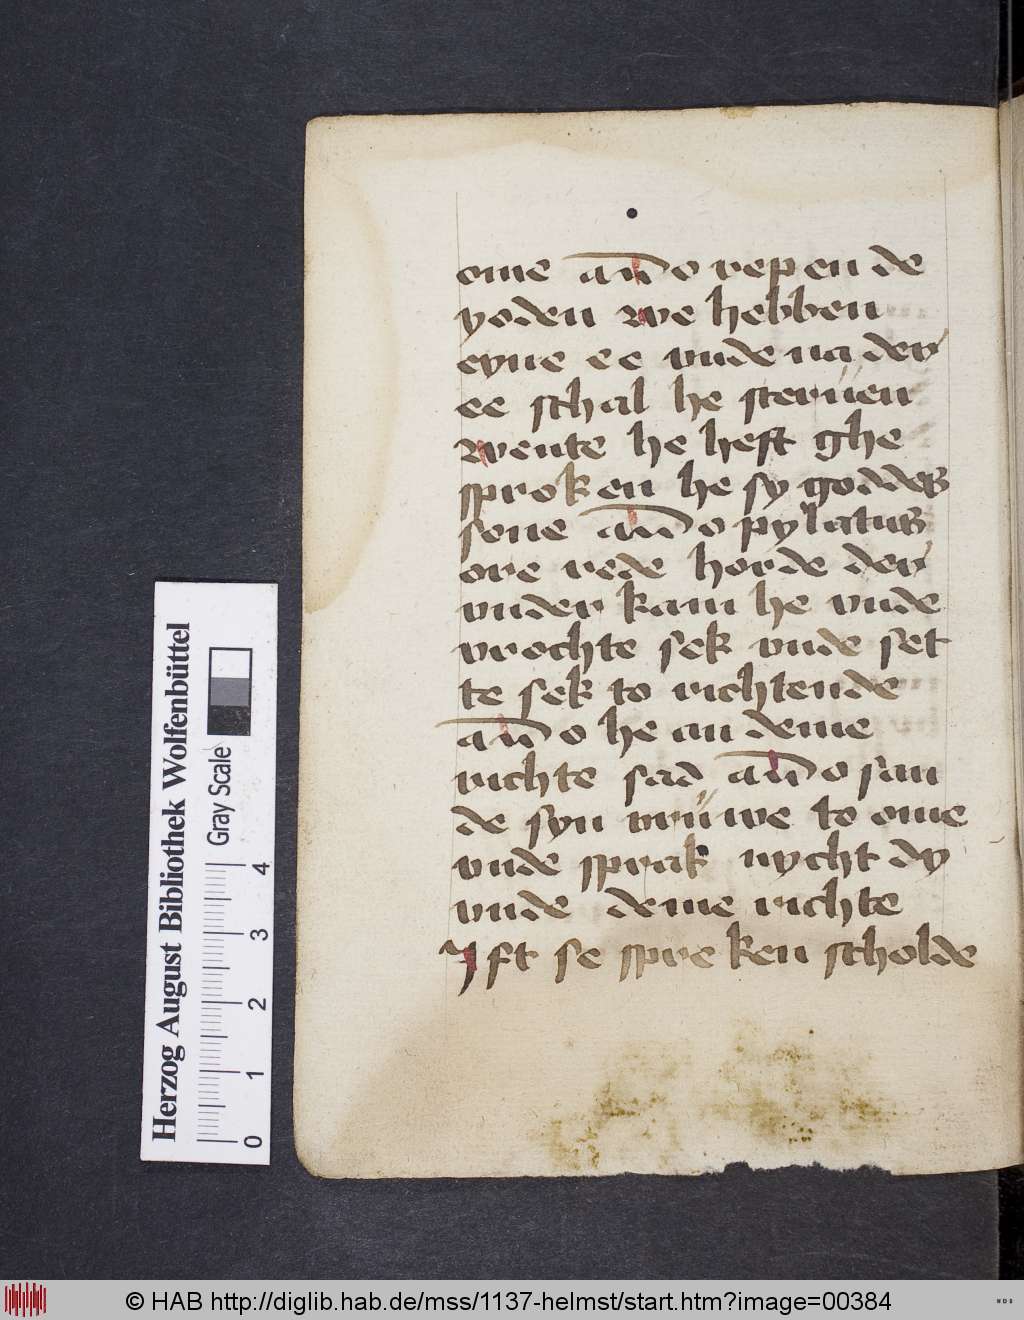 ome au̅do repen de
yoden we hebben
eyne ee vnde na der
ee schal he steruen
wente he heft ghe
sproken he sy goddes
sone au̅do pylatus
ore rede horde der
vnder kam he vnde
vrochte sek vnde set
te sek to richtende
au̅do he an deme
richte sad au̅do san
de syn vruwe to ome
vnde sprak nycht dy
vnde deme richte
yft se spreken scholde
Herzog August Bibliothek Wolfenbüttel
Gray Scale
0 1 2 3 4
© HAB http://diglib.hab.de/mss/1137-helmst/start.htm?image=00384